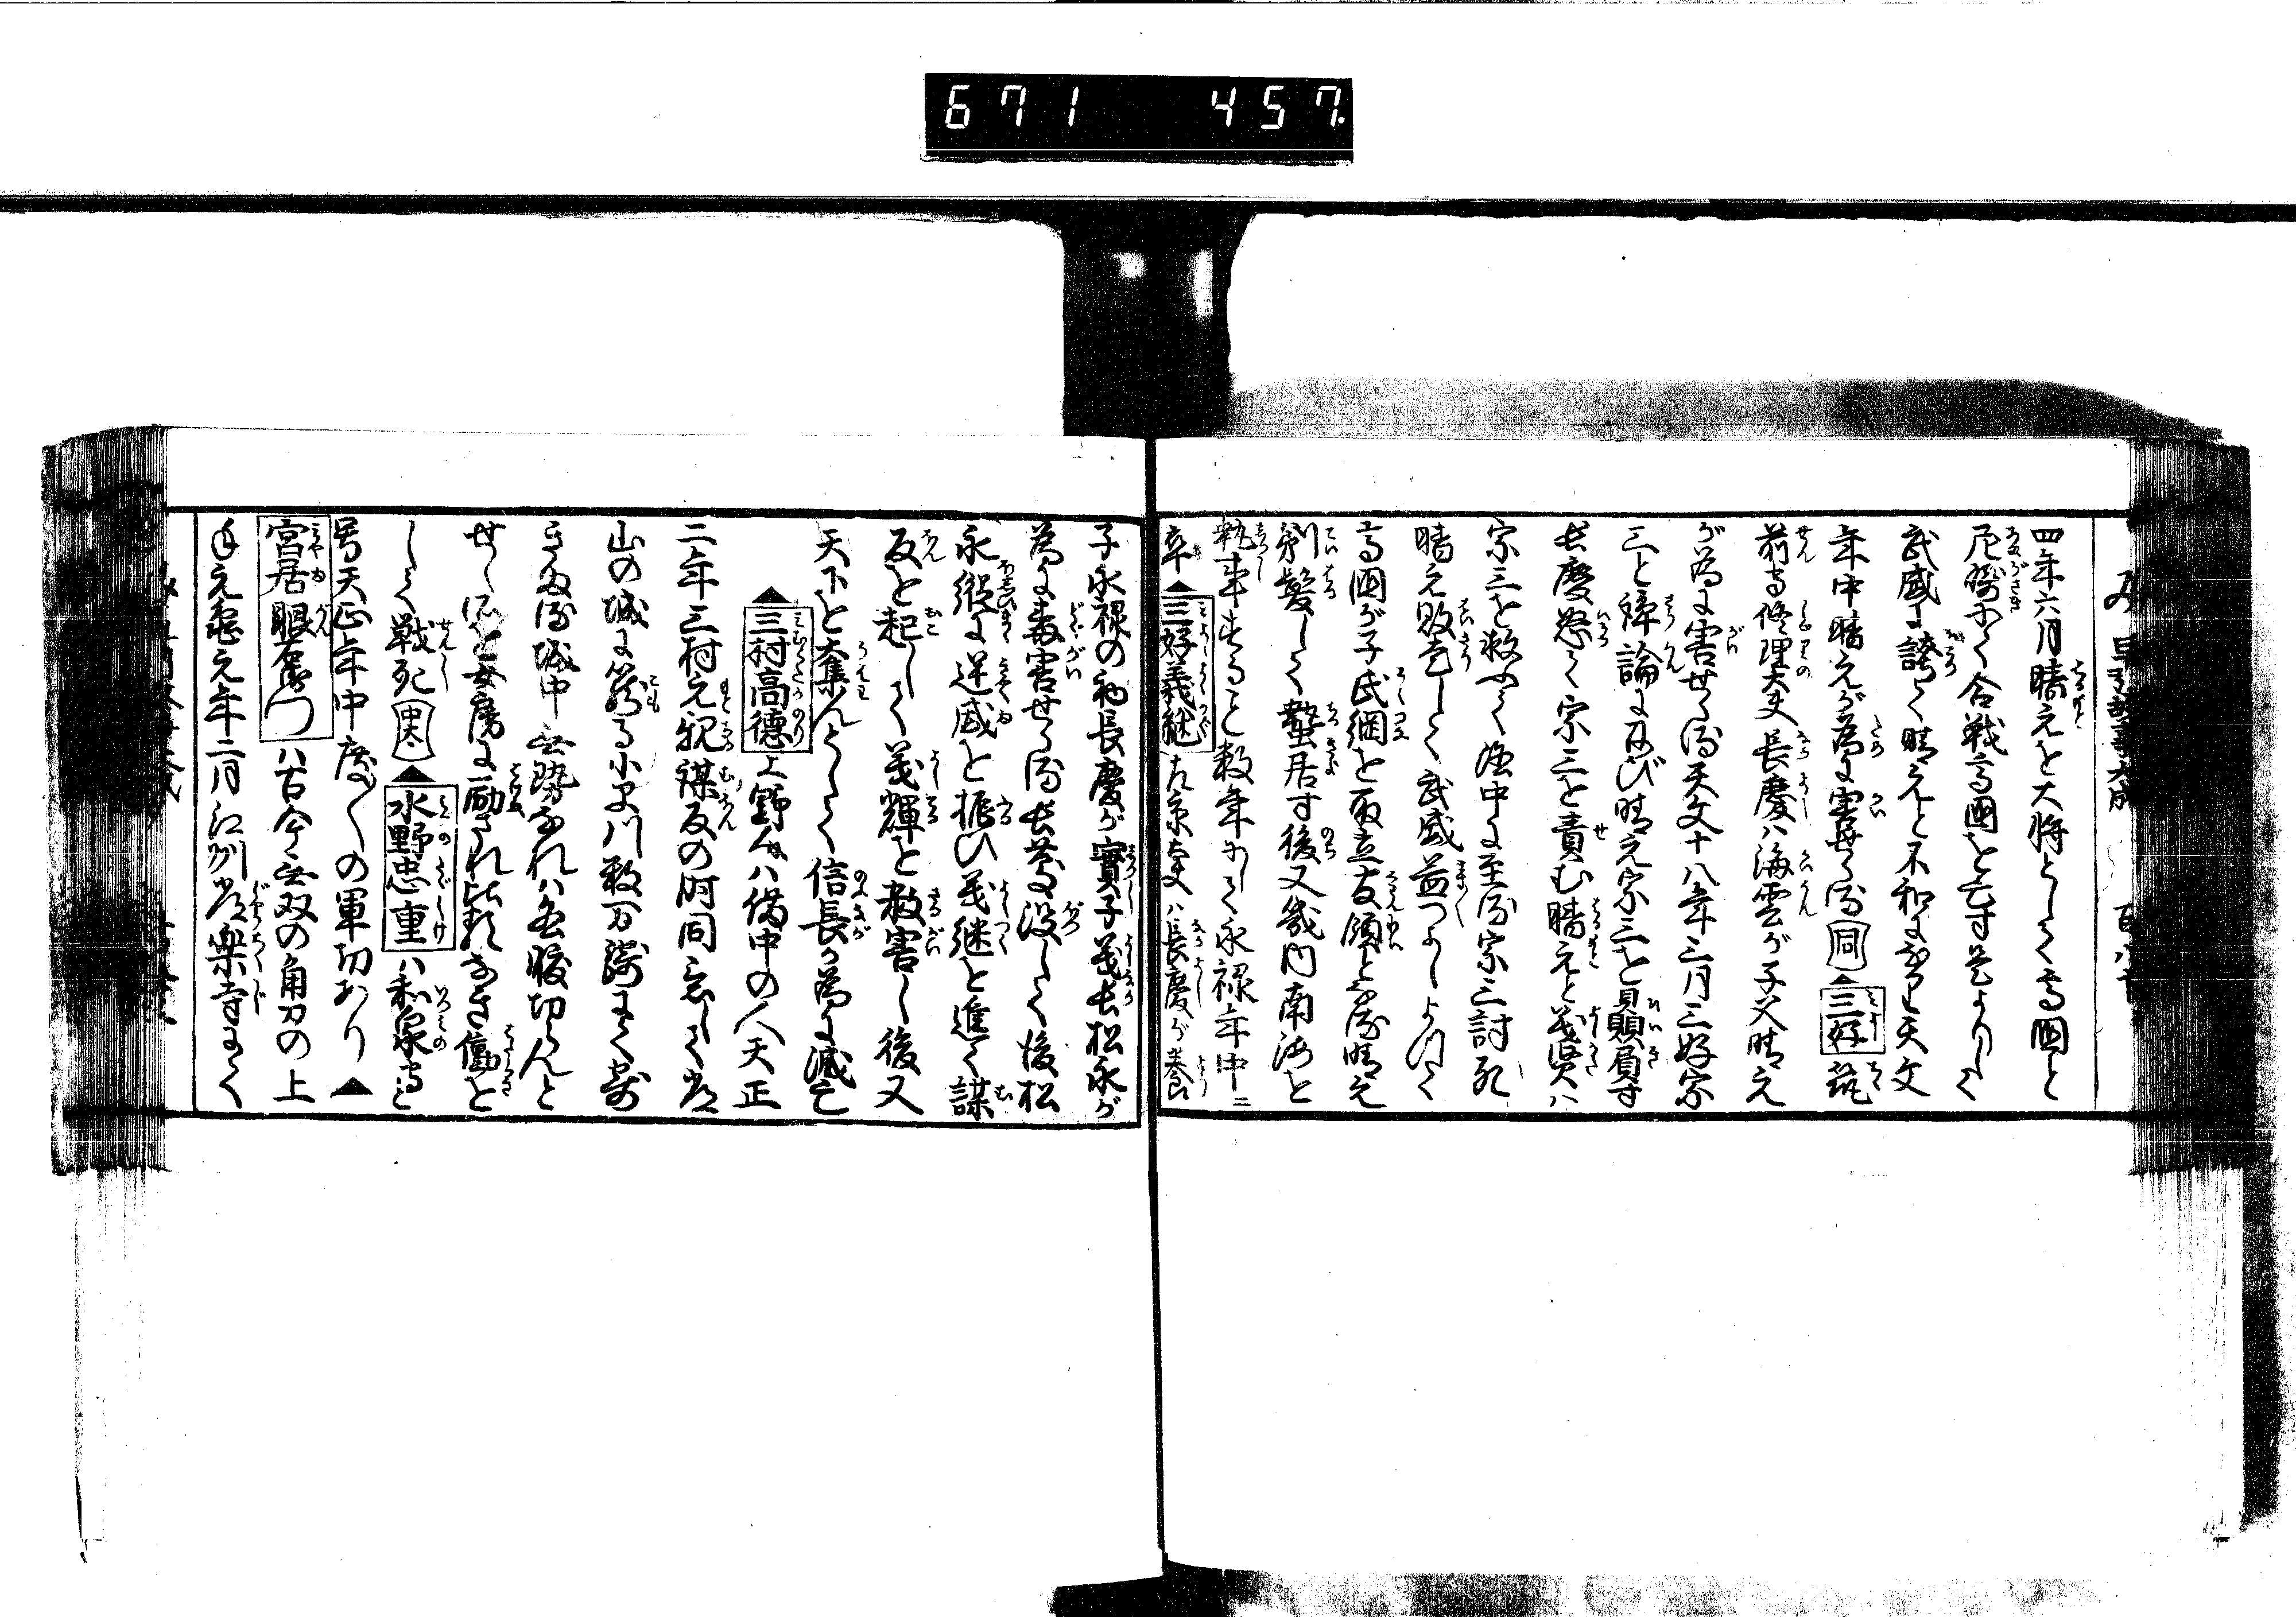 671 457.
四年六月晴元を大将として高國と
尼崎にて合戦高國を亡す是よりして
武威に誇て晴元と不和に天文
年中晴元が為に害せらる 同 ▲三好 筑
前守修理大夫長慶ハ海雲が子父晴元
が為に害せらる天文十八年三月三好宗
三と諍論に及び晴元宗三を贔屓す
長慶怒て宗三を責む晴元と義賢ハ
宗三を救ふて陣中に至る宗三討死
晴元敗亡して武威益つよしよつて
高國が子氏綱を取立管領とす晴元
剃髪して蟄居す後又畿内南海を
執事する と数年にして永禄年中ニ
卒 ▲三好義継 左京大夫ハ長慶が養
子永禄の初長慶が實子義長松永が
為に毒害せらる長慶没して後松
永縦に逆威を振ひ義継を進て謀
反を起して義輝を殺害し後又
天下を奪んとして信長が為に滅亡
▲三村高德 上野介ハ備中の人天正
二年三村元親謀反の時同意して常
山の城に籠る小早川数万騎にて寄
きたる城中無勢なれハ各腹切んと
せし所を女房に励され比類なき働を
して戦死 中大 ▲水野忠重 ハ和泉守と
号天正年中度〱の軍功あり ▲
宮居眼左衛門 ハ古今無双の角力の上
手元亀元年二月江州常樂寺にて